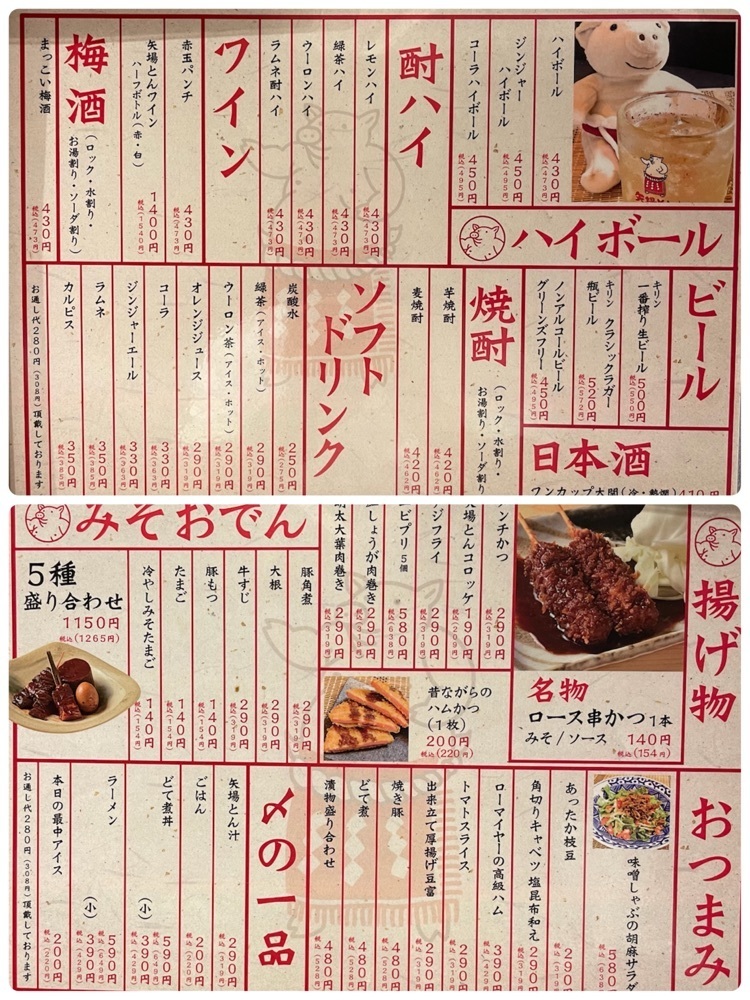 ハイボール
ハイボール 430円 税込(473円)
ジンジャーハイボール 450円 税込(495円)
コーラハイボール 450円 税込(495円)
酎ハイ
レモンハイ 430円 税込(473円)
緑茶ハイ 430円 税込(473円)
ウーロンハイ 430円 税込(473円)
ラムネ酎ハイ 430円 税込(473円)
ワイン
赤玉パンチ 430円 税込(473円)
矢場とんワイン
ハーフボトル(赤・白) 1400円 税込(1540円)
梅酒
(ロック・水割り・
お湯割り・ソーダ割り)
まっこい梅酒 430円 税込(473円)
ビール
キリン
一番搾り生ビール 500円 税込(550円)
キリン クラシックラガー
瓶ビール 520円 税込(572円)
ノンアルコールビール
グリーンズフリー 450円 税込(495円)
日本酒
ワンカップ大関(冷・熱燗) 410円
焼酎
(ロック・水割り・
お湯割り・ソーダ割り)
芋焼酎 420円 税込(462円)
麦焼酎 420円 税込(462円)
ソフトドリンク
炭酸水 250円 税込(275円)
緑茶(アイス・ホット) 290円 税込(319円)
ウーロン茶(アイス・ホット) 290円 税込(319円)
オレンジジュース 290円 税込(319円)
コーラ 330円 税込(363円)
ジンジャーエール 330円 税込(363円)
ラムネ 350円 税込(385円)
カルピス 350円 税込(385円)
お通し代280円(308円)頂戴しております
揚げ物
名物
ロース串かつ 1本
みそ/ソース 140円
税込(154円)
ンチかつ 290円 税込(319円)
矢場とんコロッケ 190円 税込(209円)
ジフライ 290円 税込(319円)
ビプリ 5個 580円 税込(638円)
しょうが肉巻き 290円 税込(319円)
明太大葉肉巻き 290円 税込(319円)
昔ながらの
ハムかつ
(1枚)
200円
税込(220円)
みそおでん
豚角煮 290円 税込(319円)
大根 290円 税込(319円)
牛すじ 290円 税込(319円)
豚もつ 140円 税込(154円)
たまご 140円 税込(154円)
冷やしみそたまご 140円 税込(154円)
5種
盛り合わせ
1150円
税込(1265円)
おつまみ
味噌しゃぶの胡麻サラダ 580円 税込(638円)
あったか枝豆 290円 税込(319円)
角切りキャベツ 塩昆布和え 290円 税込(319円)
ローマイヤーの高級ハム 390円 税込(429円)
トマトスライス 290円 税込(319円)
出来立て厚揚げ豆富 290円 税込(319円)
焼き豚 480円 税込(528円)
どて煮 480円 税込(528円)
漬物盛り合わせ 480円 税込(528円)
〆の一品
矢場とん汁 290円 税込(319円)
ごはん 200円 税込(220円)
どて煮丼 590円 税込(649円)
(小) 390円 税込(429円)
ラーメン 590円 税込(649円)
(小) 390円 税込(429円)
本日の最中アイス 200円 税込(220円)
お通し代280円(308円)頂戴しております